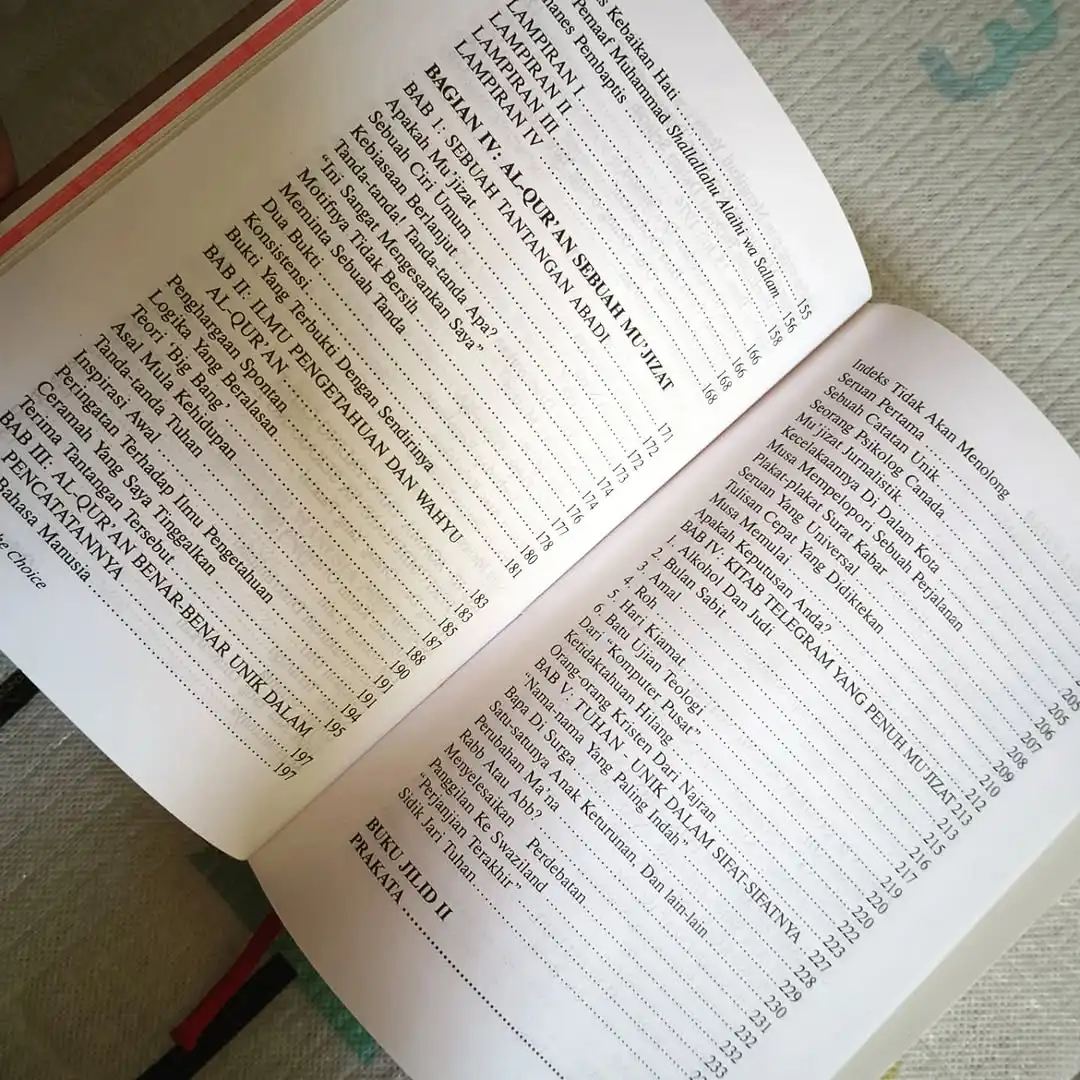 s Kebaikan Hati ........ 155
Pemaaf Muhammad Shallallahu Alaihi wa Sallam ........ 156
hanes Pembaptis ........ 158
LAMPIRAN I ........ 166
LAMPIRAN II ........ 166
LAMPIRAN III ........ 168
LAMPIRAN IV ........ 168
BAGIAN IV: AL-QUR'AN SEBUAH MU'JIZAT
BAB 1: SEBUAH TANTANGAN ABADI ........ 171
Apakah Mu'jizat ........ 172
Sebuah Ciri Umum ........ 172
Kebiasaan Berlanjut ........ 173
Tanda-tanda! Tanda-tanda Apa? ........ 174
"Ini Sangat Mengesankan Saya" ........ 174
Motifnya Tidak Bersih ........ 176
Meminta Sebuah Tanda ........ 177
Dua Bukti ........ 178
Konsistensi ........ 180
Bukti Yang Terbukti Dengan Sendirinya ........ 181
BAB II: ILMU PENGETAHUAN DAN WAHYU
AL-QUR'AN ........ 183
Penghargaan Spontan ........ 183
Logika Yang Beralasan ........ 185
Teori 'Big Bang' ........ 187
Asal Mula Kehidupan ........ 188
Tanda-tanda Tuhan ........ 190
Inspirasi Awal ........ 191
Peringatan Terhadap Ilmu Pengetahuan ........ 191
Ceramah Yang Saya Tinggalkan ........ 194
Terima Tantangan Tersebut ........ 195
BAB III: AL-QUR'AN BENAR-BENAR UNIK DALAM
PENCATATANNYA ........ 197
Bahasa Manusia ........ 197
e Choice
Indeks Tidak Akan Menolong ........
Seruan Pertama ........
Sebuah Catatan Unik ........
Seorang Psikolog Canada ........
Mu'jizat Jurnalistik ........ 205
Kecelakaannya Di Dalam Kota ........ 205
Musa Mempelopori Sebuah Perjalanan ........ 206
Plakat-plakat Surat Kabar ........ 207
Seruan Yang Universal ........ 208
Tulisan Cepat Yang Didiktekan ........ 209
Musa Memulai ........ 210
Apakah Keputusan Anda? ........ 212
BAB IV: KITAB TELEGRAM YANG PENUH MU'JIZAT 213
1. Alkohol Dan Judi ........ 213
2. Bulan Sabit ........ 215
3. Amal ........ 216
4. Roh ........ 217
5. Hari Kiamat ........ 219
6. Batu Ujian Teologi ........ 220
Dari "Komputer Pusat" ........ 220
Ketidaktahuan Hilang ........ 222
Orang-orang Kristen Dari Najran ........ 223
BAB V: TUHAN - UNIK DALAM SIFAT-SIFATNYA .. 227
"Nama-nama Yang Paling Indah" ........ 228
Bapa Di Surga ........ 229
Satu-satunya Anak Keturunan, Dan lain-lain ........ 230
Perubahan Ma'na ........ 231
Rabb Atau Abb? ........ 232
Menyelesaikan Perdebatan ........ 232
Panggilan Ke Swaziland ........ 233
"Perjanjian Terakhir" ........
Sidik Jari Tuhan ........
BUKU JILID II
PRAKATA ........